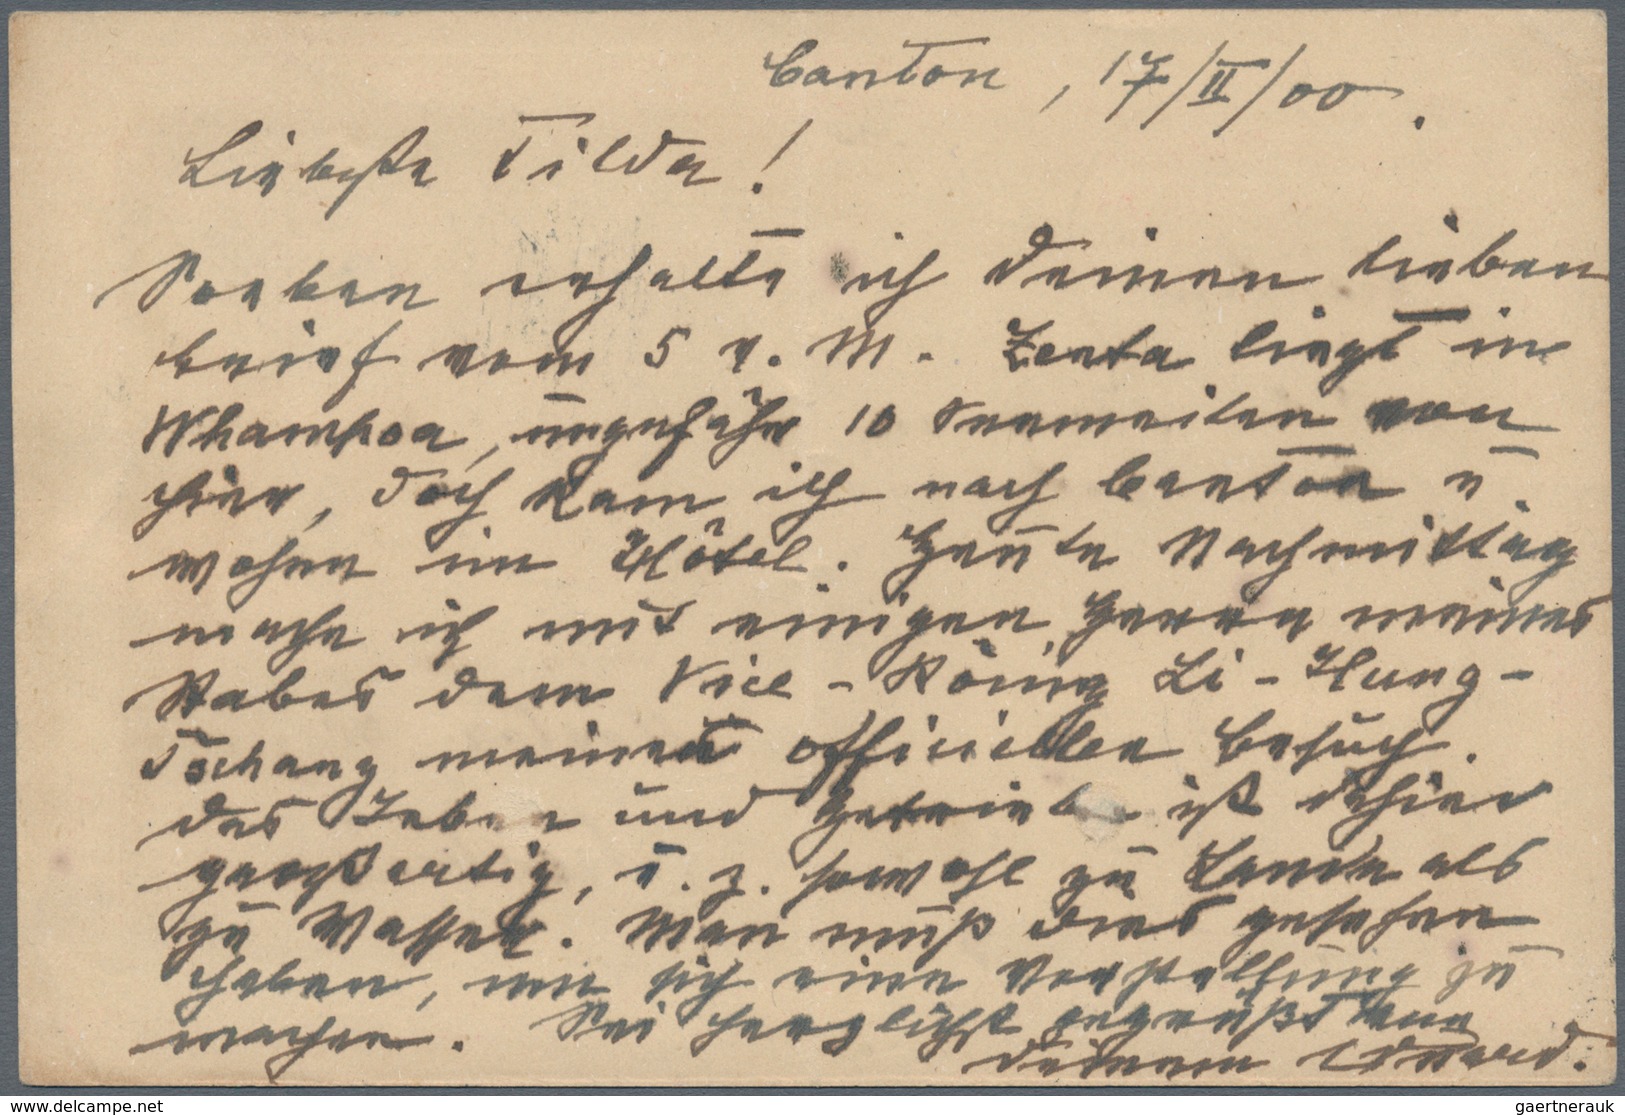 Canton, 17/II/00.
Liebste Tilda!
Soeben erhalte ich Deinen lieben
Brief vom 5 v. M. Zenta liegt in
Whampoa, ungefähr 10 Seemeilen von
hier, doch kam ich nach Canton u.
wohne im Hôtel. Heute Nachmittag
mache ich mit einigen Herrn meines
Stabes dem Vice-König Li-Hung-
Tschang meinen officiellen Besuch.
Das Leben und Getriebe ist dahier
großartig, u. z. sowohl zu Lande als
zu Wasser. Man muß dies gesehen
haben, um sich eine Vorstellung zu
machen. Sei herzlichst gegrüßt von
Deinem Eduard.
delcampe.net
gaertnerauk